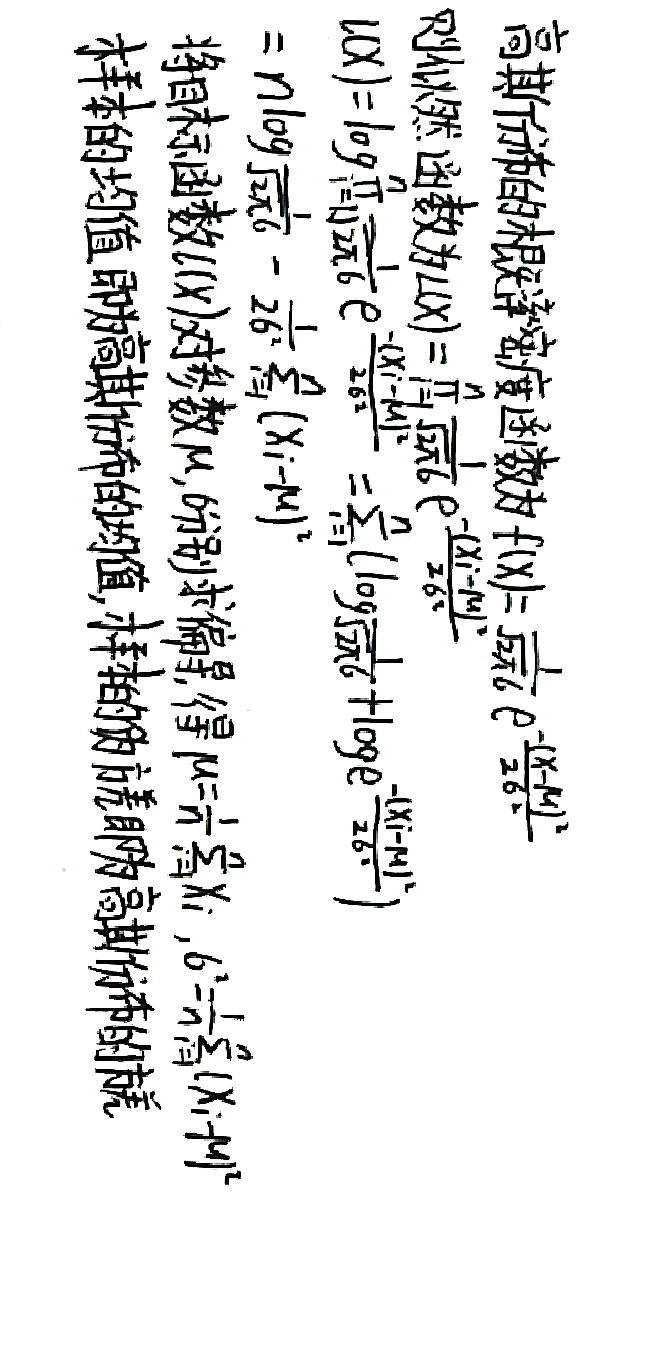 高斯分布的概率密度函数为 f(x) = \frac{1}{\sqrt{2π}σ} e^{\frac{-(x-μ)^2}{2σ^2}}
则似然函数为L(x) = \prod_{i=1}^{n} \frac{1}{\sqrt{2π}σ} e^{\frac{-(x_i-μ)^2}{2σ^2}}
l(x) = log \prod_{i=1}^{n} \frac{1}{\sqrt{2π}σ} e^{\frac{-(x_i-μ)^2}{2σ^2}} = \sum_{i=1}^{n} (log \frac{1}{\sqrt{2π}σ} + log e^{\frac{-(x_i-μ)^2}{2σ^2}})
= n log \frac{1}{\sqrt{2π}σ} - \frac{1}{2σ^2} \sum_{i=1}^{n} (x_i-μ)^2
将目标函数l(x)对参数μ,σ分别求偏导,得 μ = \frac{1}{n} \sum_{i=1}^{n} x_i , σ^2 = \frac{1}{n} \sum_{i=1}^{n} (x_i-μ)^2
样本的均值即为高斯分布的均值,样本的方差即为高斯分布的方差